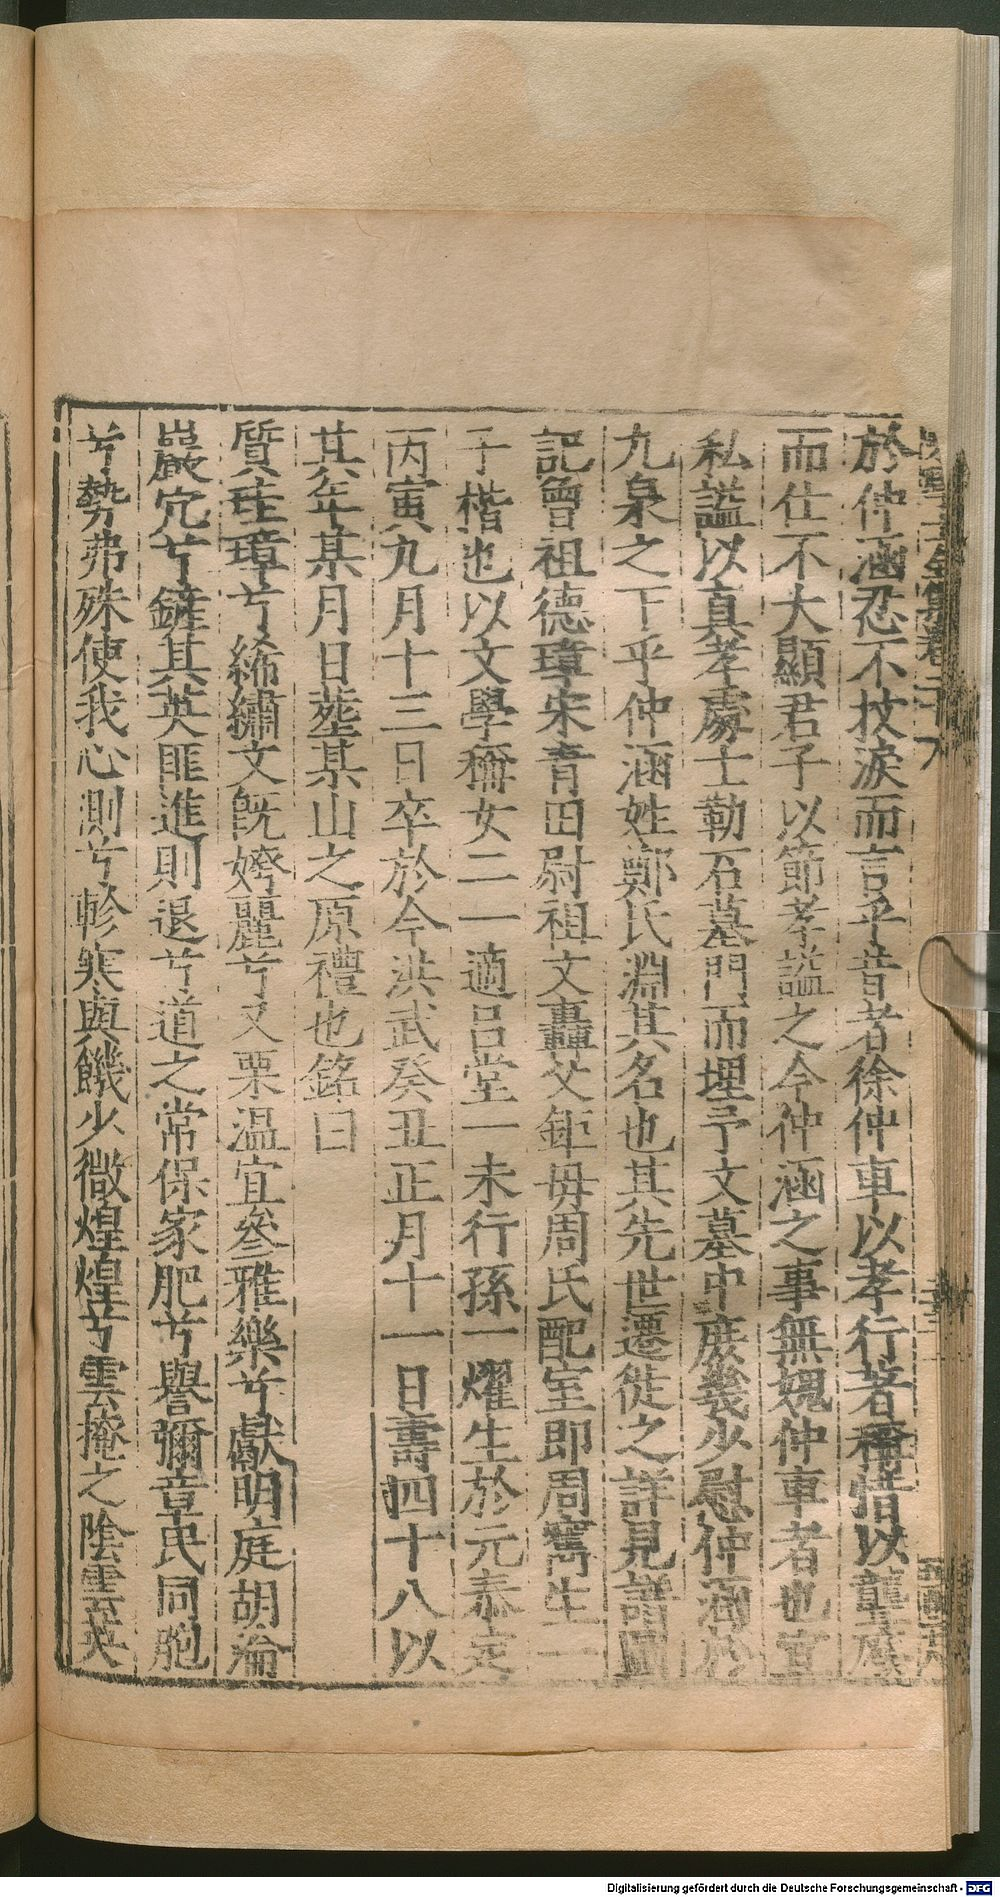 於仲涵忍不抆淚而言乎昔者徐仲車以孝行著稱惜以聾廢
而仕不大顯君子以節孝謚之今仲涵之事無媿仲車者也宜
私謚以真孝處士勒石墓門而埋予文墓中庶幾少慰仲涵於
九泉之下乎仲涵姓鄭氏淵其名也其先世遷徙之詳見譜圖
記曾祖德璋宋青田尉祖文轟父鉅毋周氏配室即周寯生一
子楷也以文學稱女二一適呂堂一未行孫一燿生於元泰定
丙寅九月十三日卒於今洪武癸丑正月十一日壽四十八以
其年某月日塟某山之原禮也銘曰
質珪璋兮絺繡文旣姱麗兮又栗温宜參雅樂兮獻明庭胡淪
巖穴兮鏟其英匪進則退兮道之常保家肥兮譽彌章民同胞
兮勢弗殊使我心測兮軫寒與饑少微煌煌兮雲掩之陰雲英
Digitalisierung gefördert durch die Deutsche Forschungsgemeinschaft - DFG